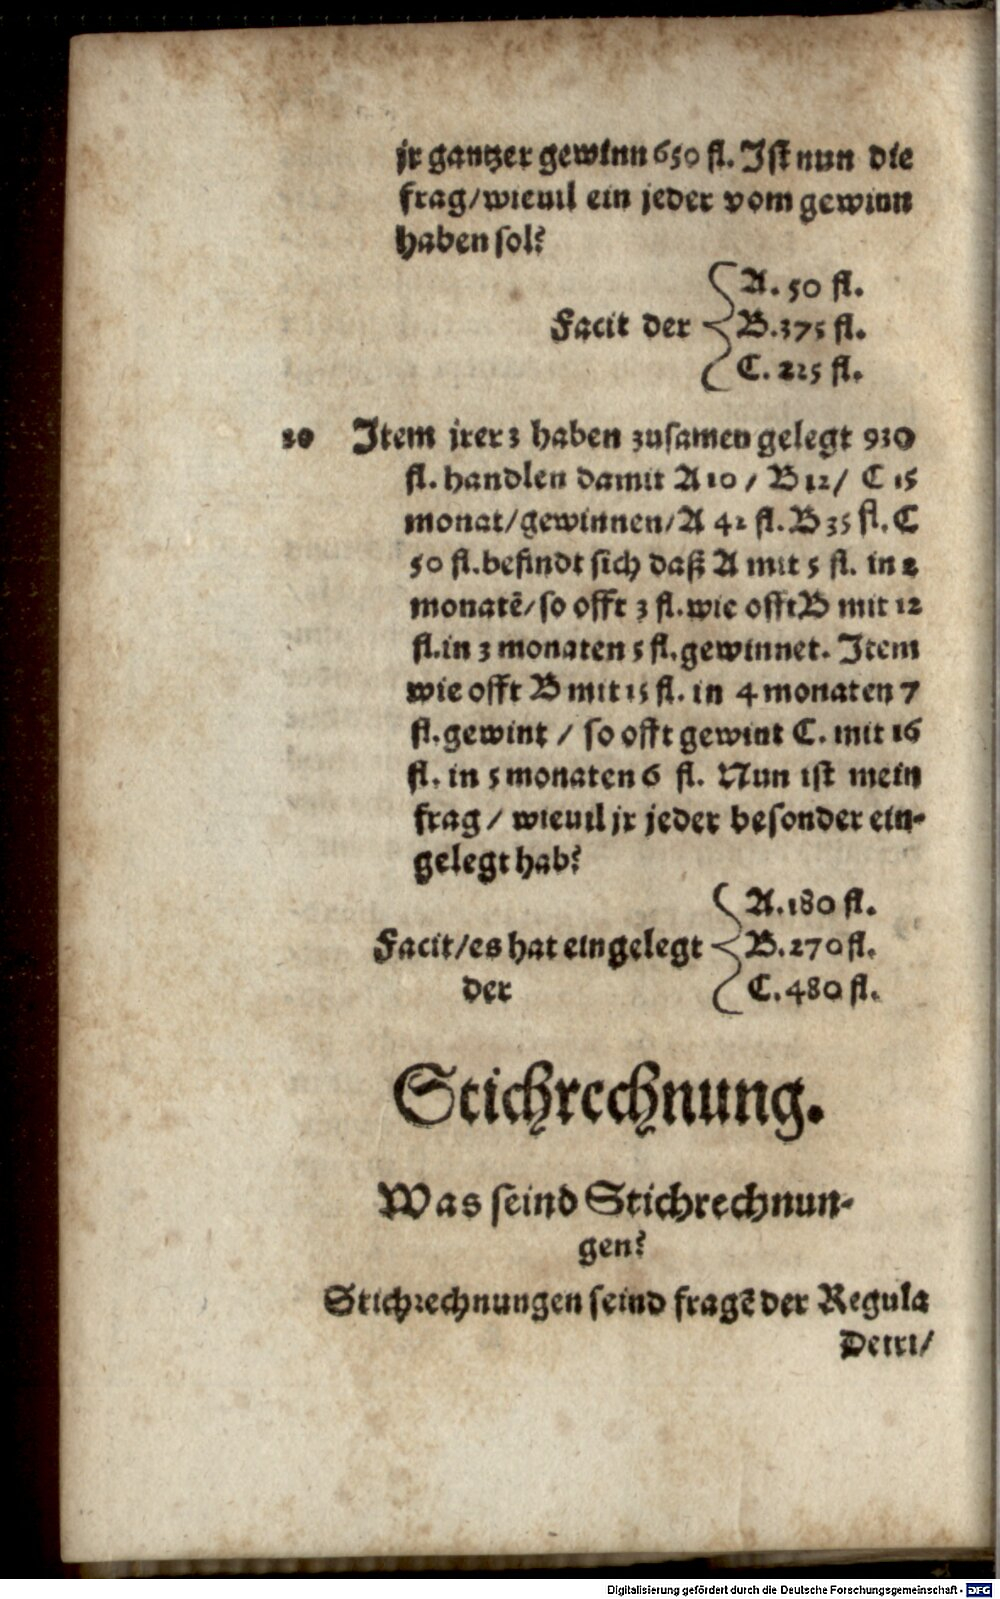 jr gantzer gewinn 650 fl. Ist nun die
frag/wieuil ein jeder vom gewinn
haben sol?
A. 50 fl.
Facit der B. 375 fl.
C. 225 fl.
Item jrer 3 haben zusamen gelegt 930
fl. handlen damit A 10 / B 12/ C 15
monat/gewinnen/A 42 fl. B 35 fl. C
50 fl. befindt sich daß A mit 5 fl. in 2
monatē/so offt 3 fl. wie offt B mit 12
fl. in 3 monaten 5 fl. gewinnet. Item
wie offt B mit 15 fl. in 4 monaten 7
fl. gewint / so offt gewint C. mit 16
fl. in 5 monaten 6 fl. Nun ist mein
frag / wieuil jr jeder besonder ein-
gelegt hab?
A. 180 fl.
Facit/es hat eingelegt B. 270 fl.
der C. 480 fl.
Stichrechnung.
Was seind Stichrechnun-
gen?
Stichrechnungen seind fragē der Regula
Detri/
Digitalisierung gefördert durch die Deutsche Forschungsgemeinschaft - DFG